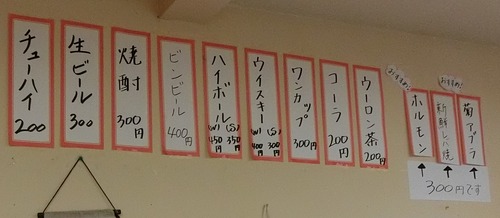 チューハイ
200
生ビール
300
焼酎
300円
ビンビール
400円
ハイボール
(W) (S)
450円 350円
ウイスキー
(W) (S)
400円 300円
ワンカップ
300円
コーラ
200円
ウーロン茶
200円
おすすめ!
ホルモン
おすすめ!
新鮮レバ焼
菊アブラ
300円です